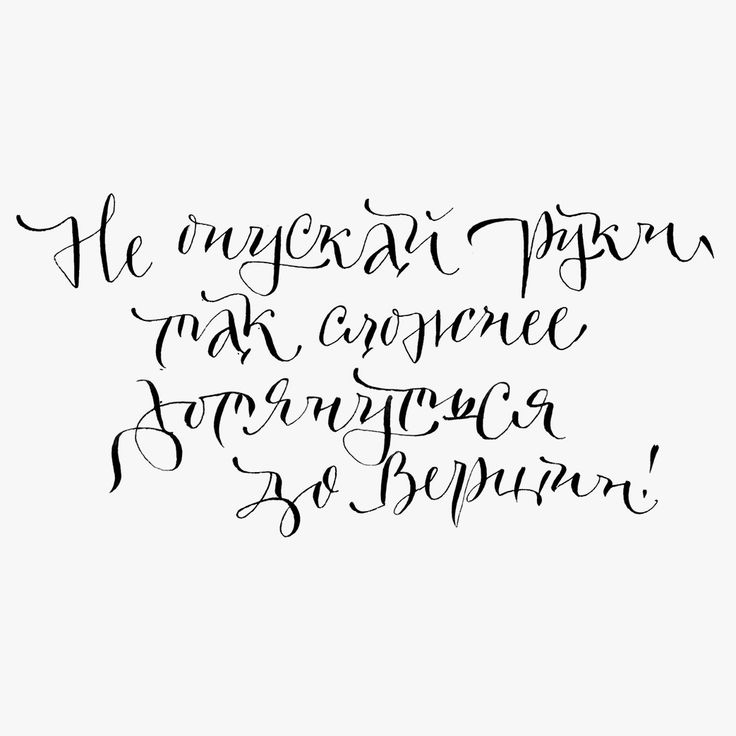 Не опускай руки,
так сложнее
дотянуться
до вершин!